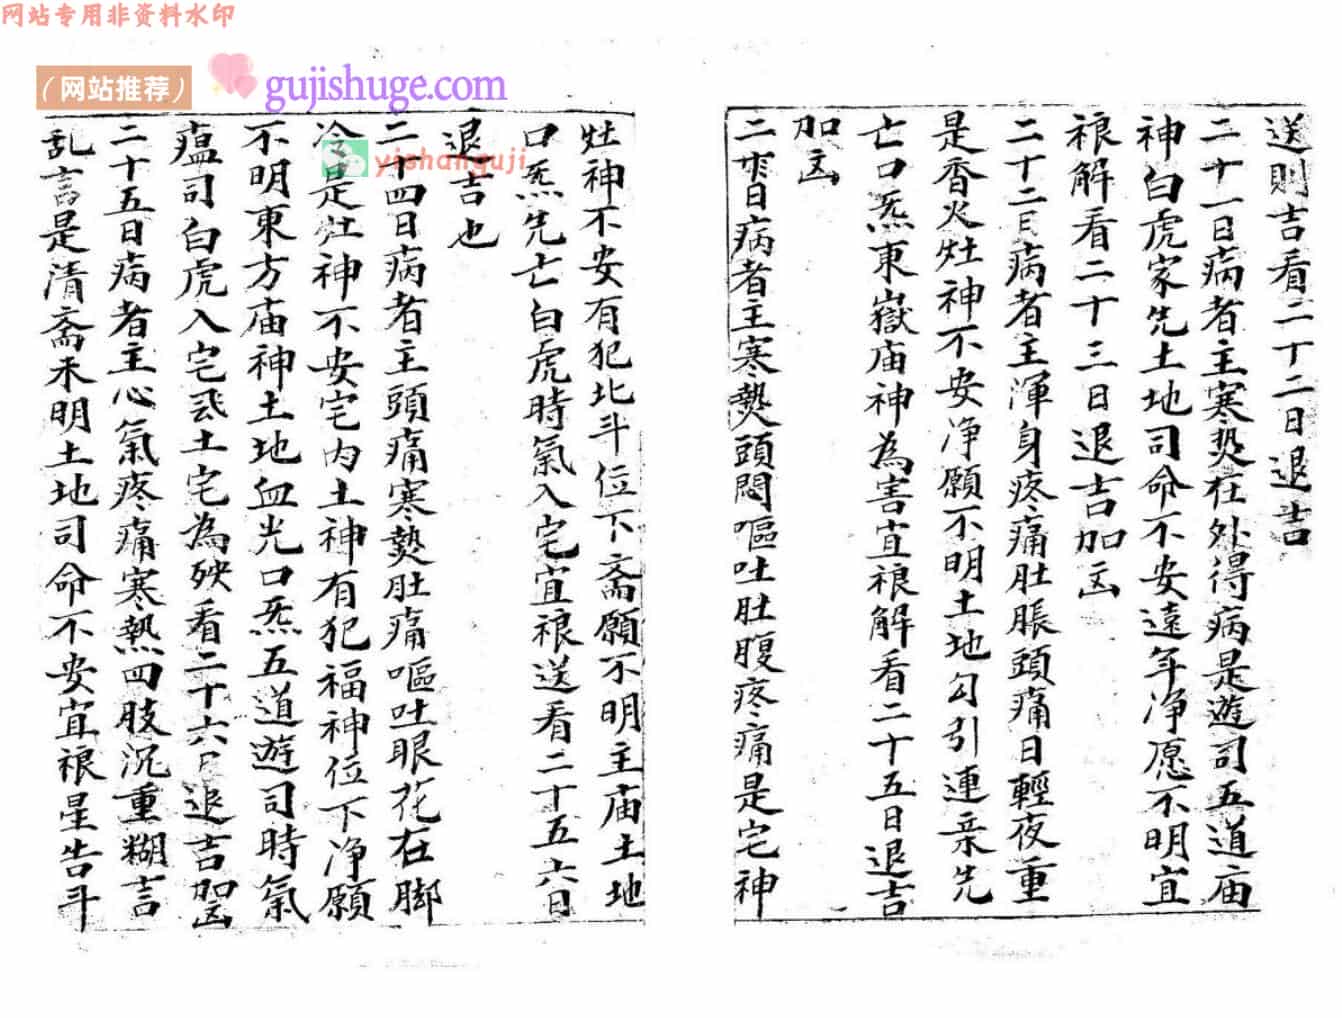 网站专用非资料水印
（网站推荐）
gujishuge.com
yishanguji
送則吉看二十二日退吉
二十一日病者主寒熱在处得病是遊司五道庙
神白虎家先土地司命不安遠年净愿不明宜
禳解看二十三日退吉加凶
二十二日病者主渾身疼痛肚脹頭痛日輕夜重
是香火灶神不安净願不明土地勾引連亲先
亡口炁東嶽庙神為害宜禳解看二十五日退吉
加凶
二十三日病者主寒熱頭悶嘔吐肚腹疼痛是宅神
灶神不安有犯北斗位下斋願不明主庙土地
口炁先亡白虎時氣入宅宜禳送看二十五六日
退吉也
二十四日病者主頭痛寒熱肚痛嘔吐眼花在脚
冷是灶神不安宅内土神有犯福神位下净願
不明東方庙神土地血光口炁五道遊司時氣
瘟司白虎入宅飛土宅為殃看二十六日退吉加凶
二十五日病者主心氣疼痛寒熱四肢沉重糊言
乱言是清斋未明土地司命不安宜禳星告斗